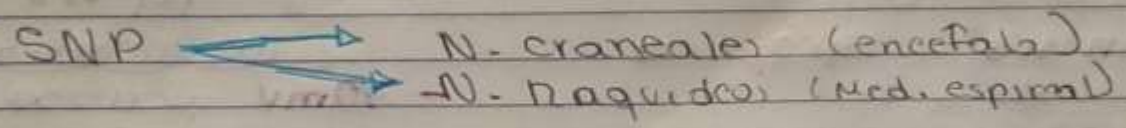 SNP N. craneales (encefalo)
N. Raquideos (Med. espinal)